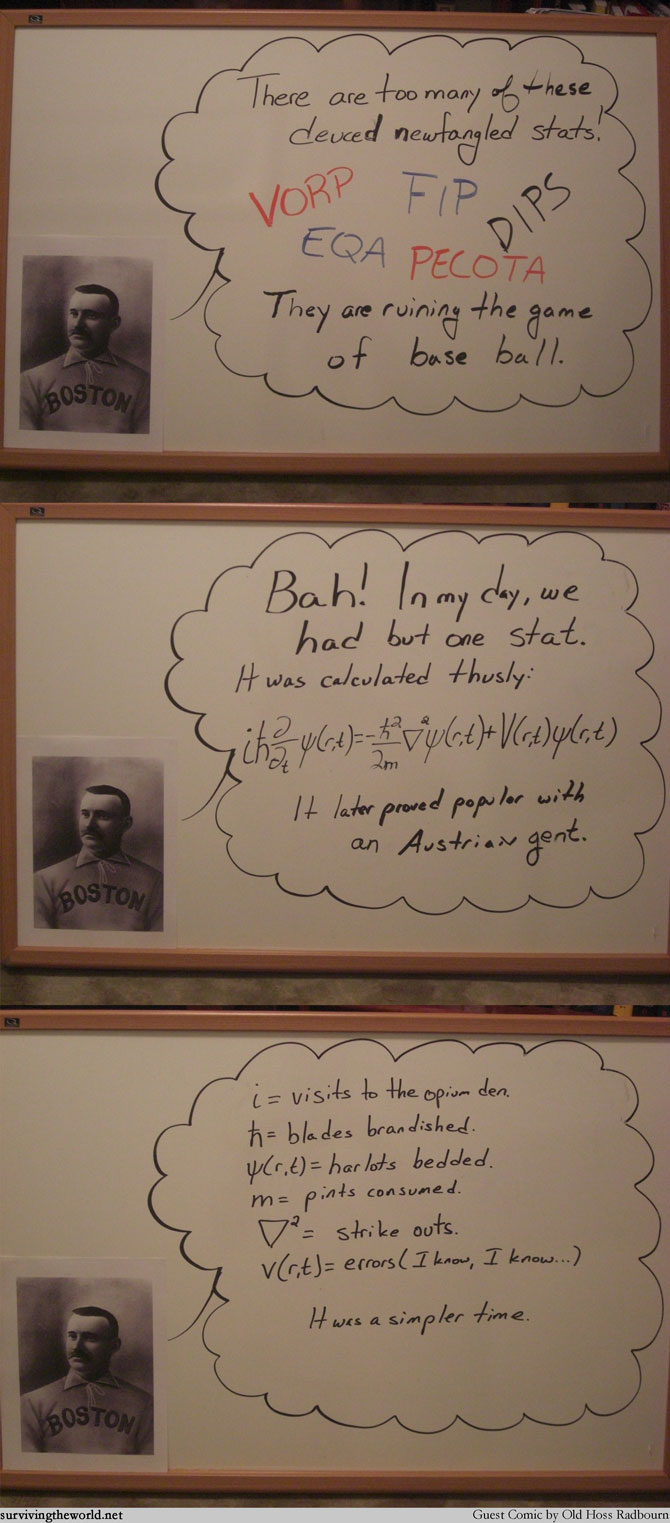 There are too many of these
deuced newfangled stats!
VORP FIP DIPS
EQA PECOTA
They are ruining the game
of base ball.
BOSTON
Bah! In my day, we
had but one stat.
It was calculated thusly:
iħ∂/∂t ψ(r,t)=-ħ²/2m ∇²ψ(r,t)+V(r,t)ψ(r,t)
It later proved popular with
an Austrian gent.
BOSTON
i = visits to the opium den.
ħ= blades brandished.
ψ(r,t)= harlots bedded.
m= pints consumed.
∇²= strike outs.
V(r,t)= errors (I know, I know...)
It was a simpler time.
BOSTON
survivingtheworld.net
Guest Comic by Old Hoss Radbourn